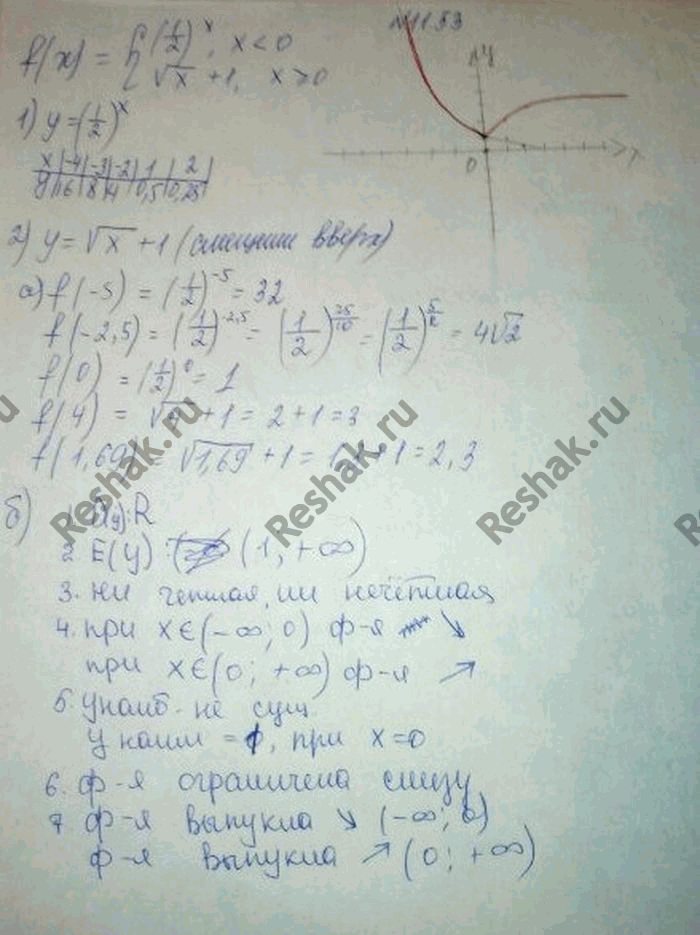 №11.53
f(x) = { (1/2)^x, x < 0
√x + 1, x > 0
y
0
x
1) y = (1/2)^x
x | -4 | -3 | -2 | 1 | 2 |
y | 16 | 8 | 4 | 0,5 | 0,25 |
2) y = √x + 1 (смещение вверх)
а) f(-5) = (1/2)^-5 = 32
f(-2,5) = (1/2)^-2,5 = (1/2)^25/10 = (1/2)^5/2 = 4√2
f(0) = (1/2)^0 = 1
f(4) = √4 + 1 = 2 + 1 = 3
f(1,69) = √1,69 + 1 = 1,3 + 1 = 2,3
б) D(y): R
2. E(y): (1, +∞)
3. ни чётная, ни нечётная
4. при x∈(-∞; 0) ф-я ↘
при x∈(0; +∞) ф-я ↗
5. y наиб - не сущ.
y наим = 1, при x=0
6. ф-я ограничена снизу
7 ф-я выпукла ↘ (-∞; 0)
ф-я выпукла ↗ (0; +∞)
Reshak.ru
Reshak.ru
Reshak.ru